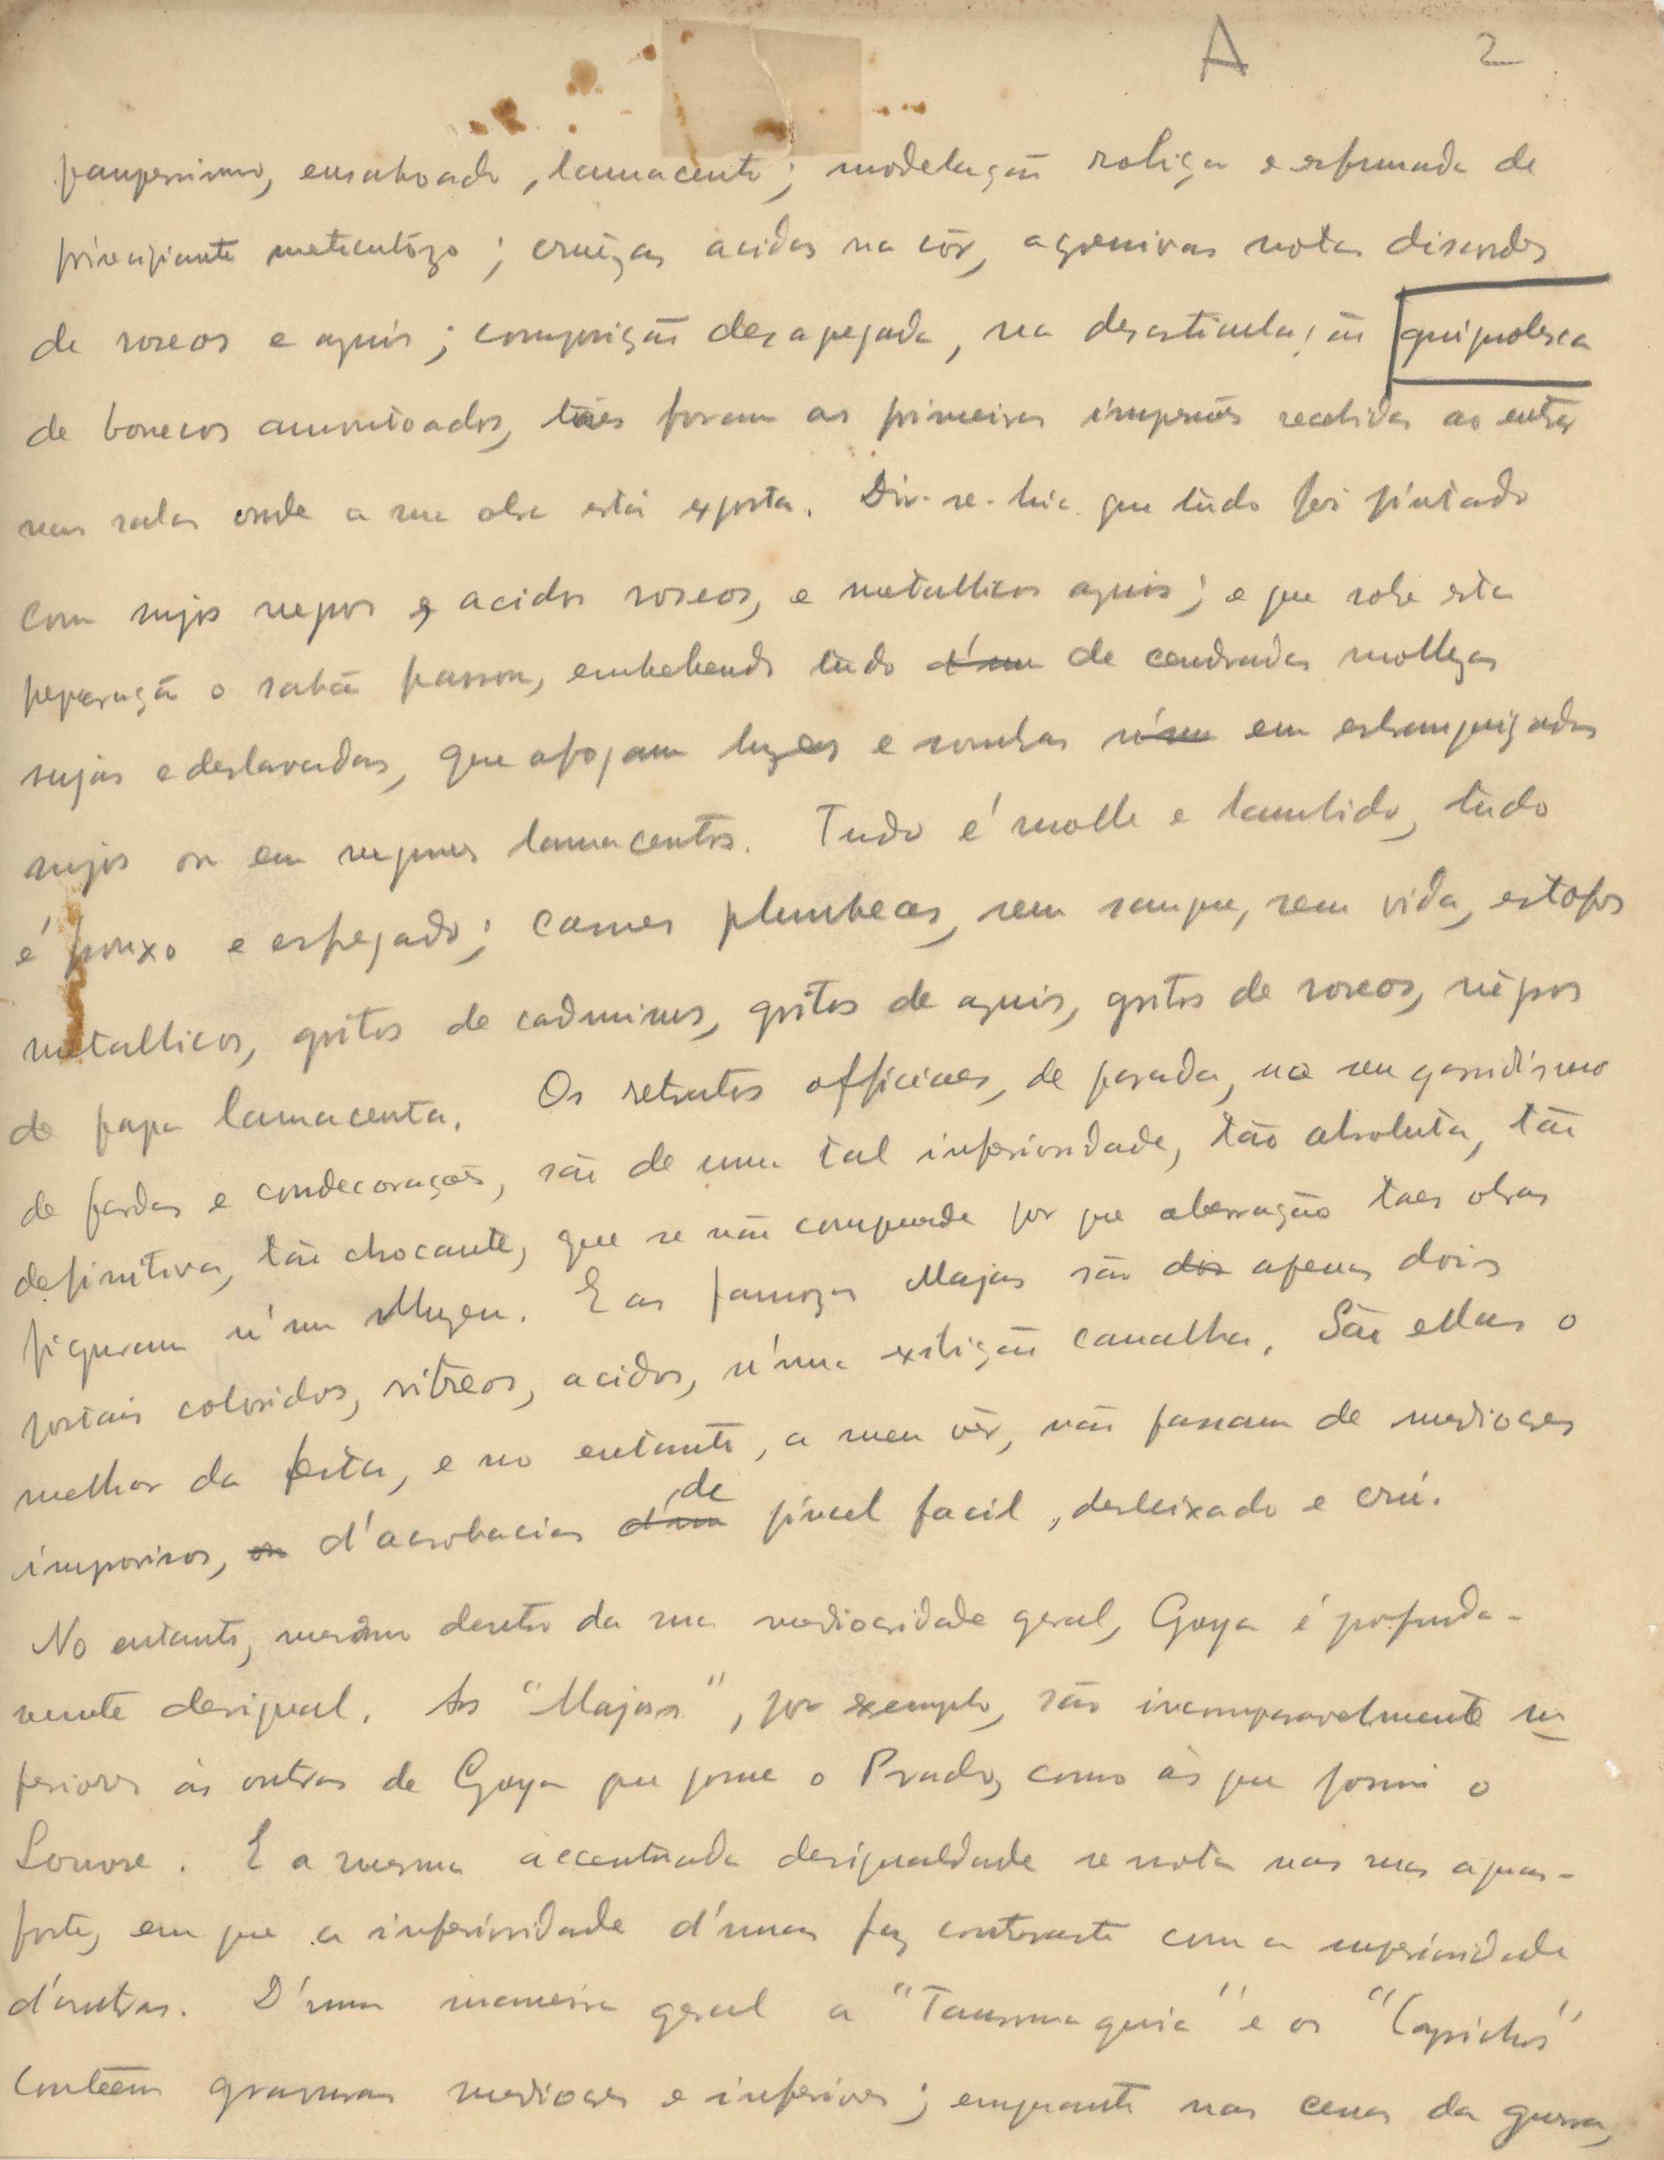 A 2
pauperrimo, ensaboado, lamacento; modelação roliça e esfumada de
principiante meticulôzo; cruêzas acidas na côr, agressivas notas discordes
de roseos e azuis; composição dezapegada, na desarticulação guignolesca
de bonecos amontoados, táes foram as primeiras impressões recebidas ao entrar
nas salas onde a sua obra está exposta. Dir-se-hia que tudo foi pintado
com sujos negros e acidos roseos, e metallicos azuis; e que sobre esta
preparação o sabão passou, embebendo tudo d'um de cendradas mollezas
sujas e deslavadas, que afogam luzes e sombras n'um em esbranquiçados
sujos ou em negrumes lamacentos. Tudo é molle e lambido, tudo
é frouxo e esfregado; carnes plumbeas, sem sangue, sem vida, estofos
metallicos, gritos de cadmiuns, gritos de azuis, gritos de roseos, négros
de papa lamacenta. Os retratos officiaes, de parada, no seu garridismo
de fardas e condecorações, são de uma tal inferioridade, tão absoluta, tão
definitiva, tão chocante, que se não comprende por que aberração taes obras
figuram n'um Muzeu. E as famozas Majas são dos apenas dois
postais coloridos, vitreos, acidos, n'uma exibição canalha. São ellas o
melhor da festa, e no entanto, a meu vêr, não passam de mediocres
improvisos, ou d'acrobacias d'um de pincel facil, desleixado e crú.
No entanto, mesmo dentro da sua mediocridade geral, Goya é profunda-
mente desigual. As "Majas", por exemplo, são incomparavelmente su
periores ás outras de Goya que possue o Prado, como ás que possui o
Louvre. E a mesma accentuada desigualdade se nota nas suas aguas-
fortes, em que a inferioridade d'umas faz contraste com a superioridade
d'outras. D'uma maneira geral a "Tauromaquia" e os "Caprichos"
contêem gravuras mediocres e inferiores; emquanto nas cenas da guerra,